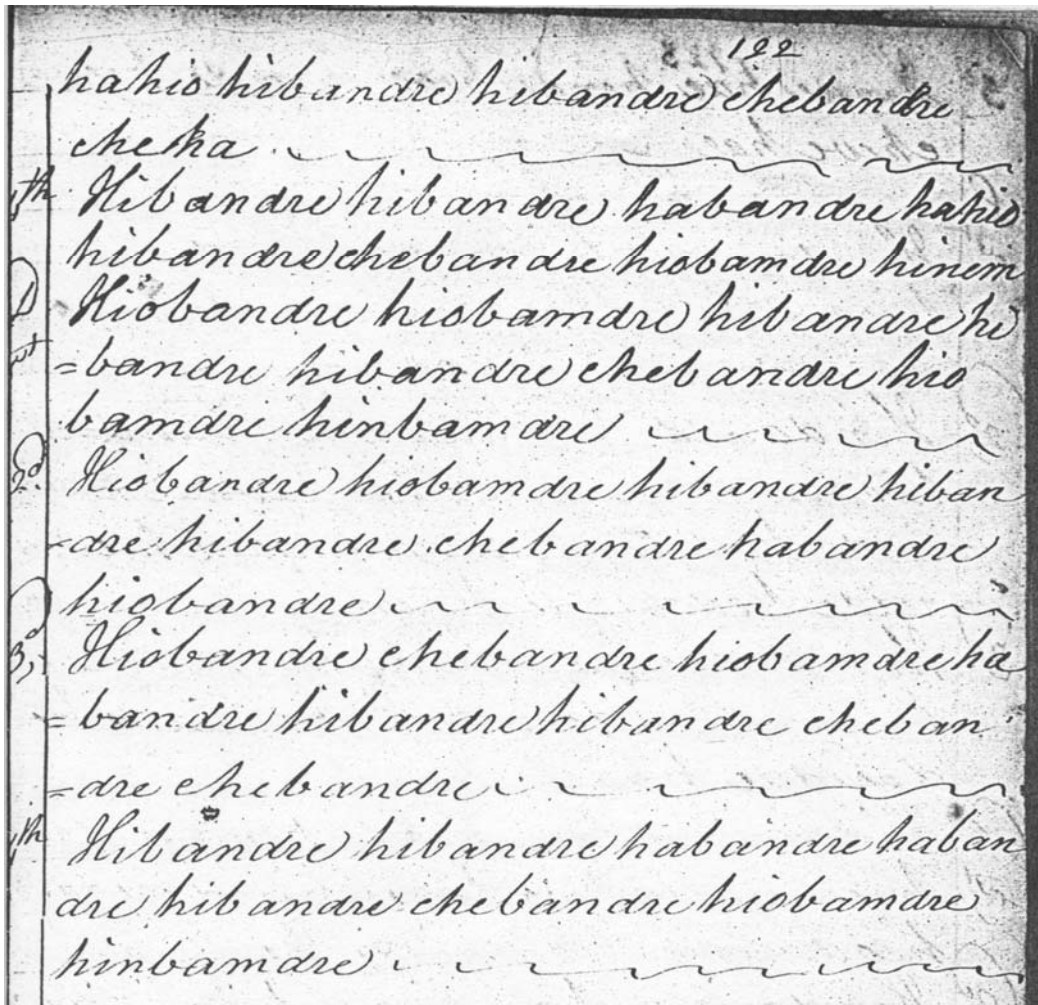 122
hahio hibandre hibandre chebandre
cheha
4th Hibandre hibandre habandre hahio
hibandre chebandre hiobamdre hinem
D Hiobandre hiobamdre hibandre hi
1st =bandre hibandre chebandre hio
bamdre hinbamdre
2d. Hiobandre hiobamdre hibandre hiban
-dre hibandre chebandre habandre
hiobandre
3d, Hiobandre chebandre hiobamdre ha
=bandre hibandre hibandre cheban
=dre chebandre
4th Hibandre hibandre habandre haban
dre hibandre chebandre hiobamdre
hinbamdre